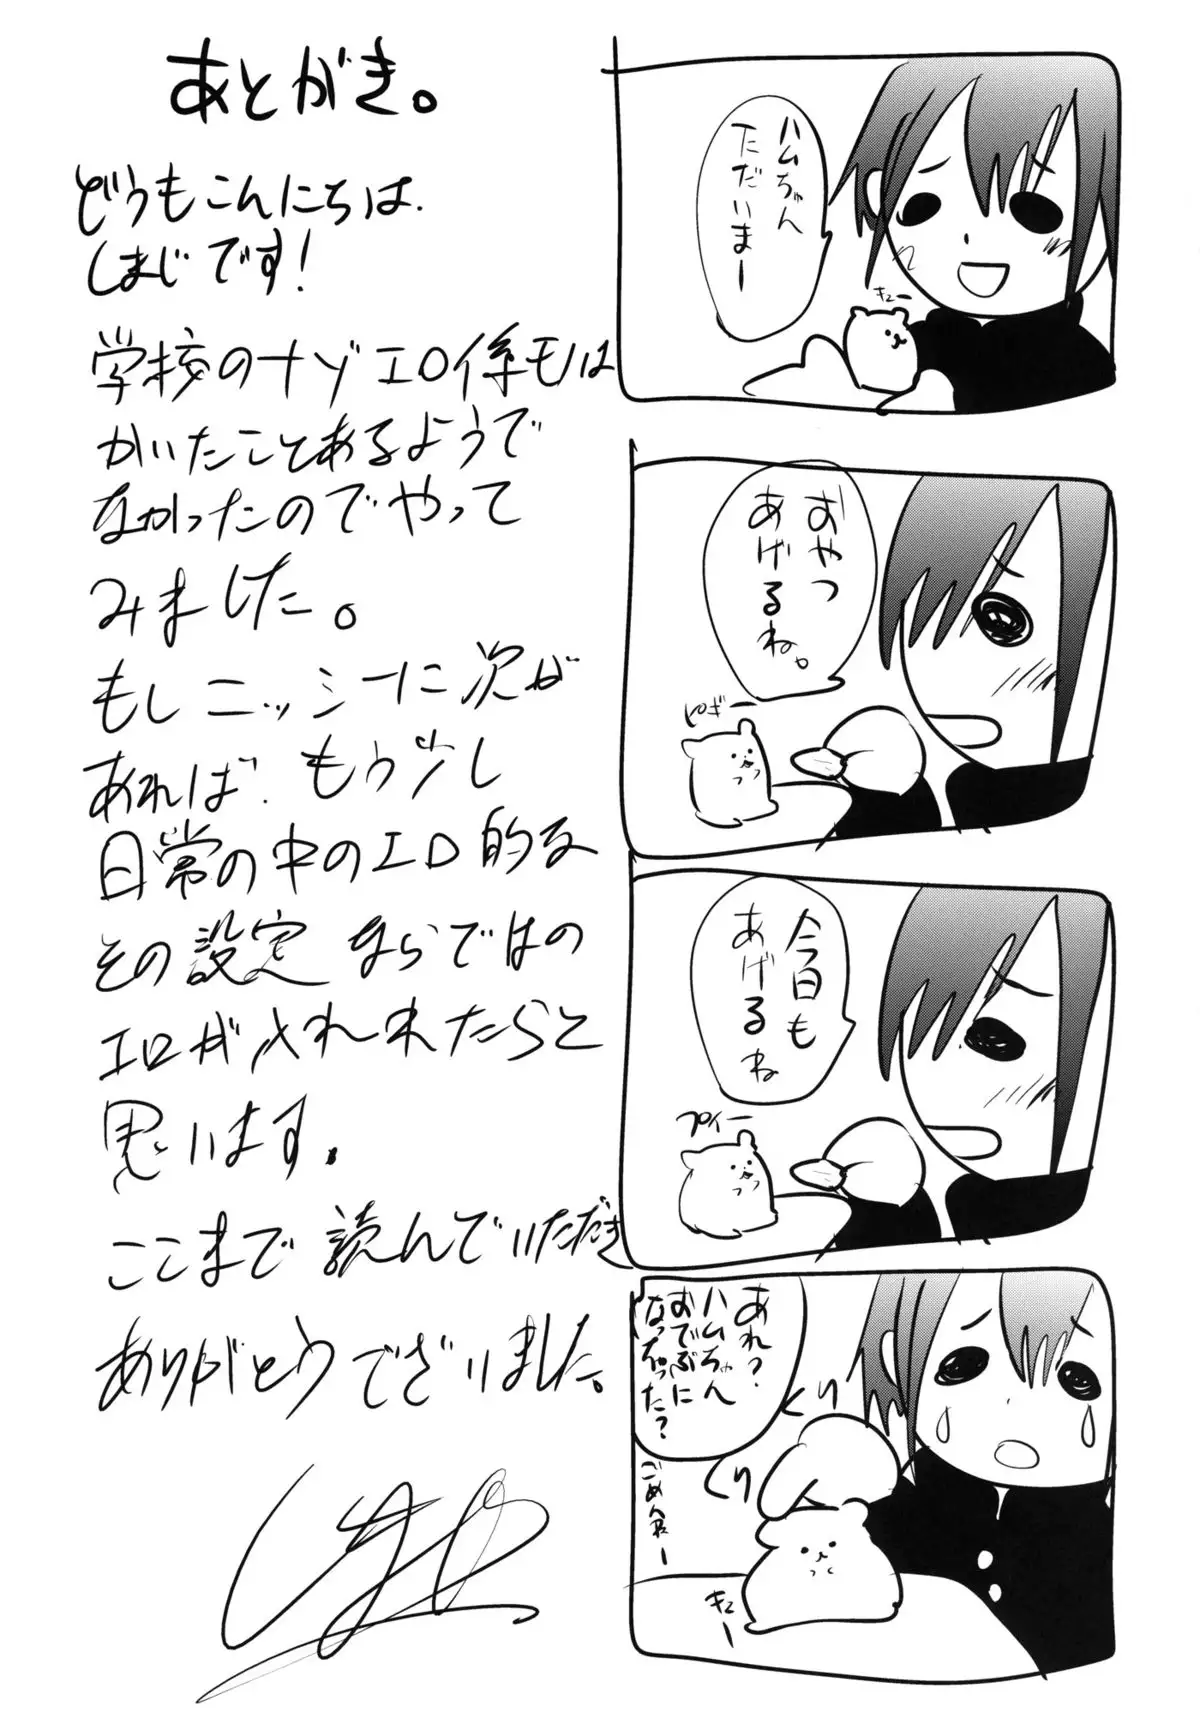 あとがき。
どうもこんにちは.
しまじです!
学校のナゾエロ係モノは
かいたことあるようで
なかったのでやって
みました。
もしニッシーに次が
あれば、もう少し
日常の中のエロ的な
その設定ならではの
エロがされれたらと
思います。
ここまで読んでいただき
ありがとうございました。
ハムちゃん
ただいまー
キュー
おやつ
あげるね。
ピギー
今日も
あげるね
プイー
あれ?
ハムちゃん
おでぶに
なっちゃった?
くり
くり
ごめんねー
キュー